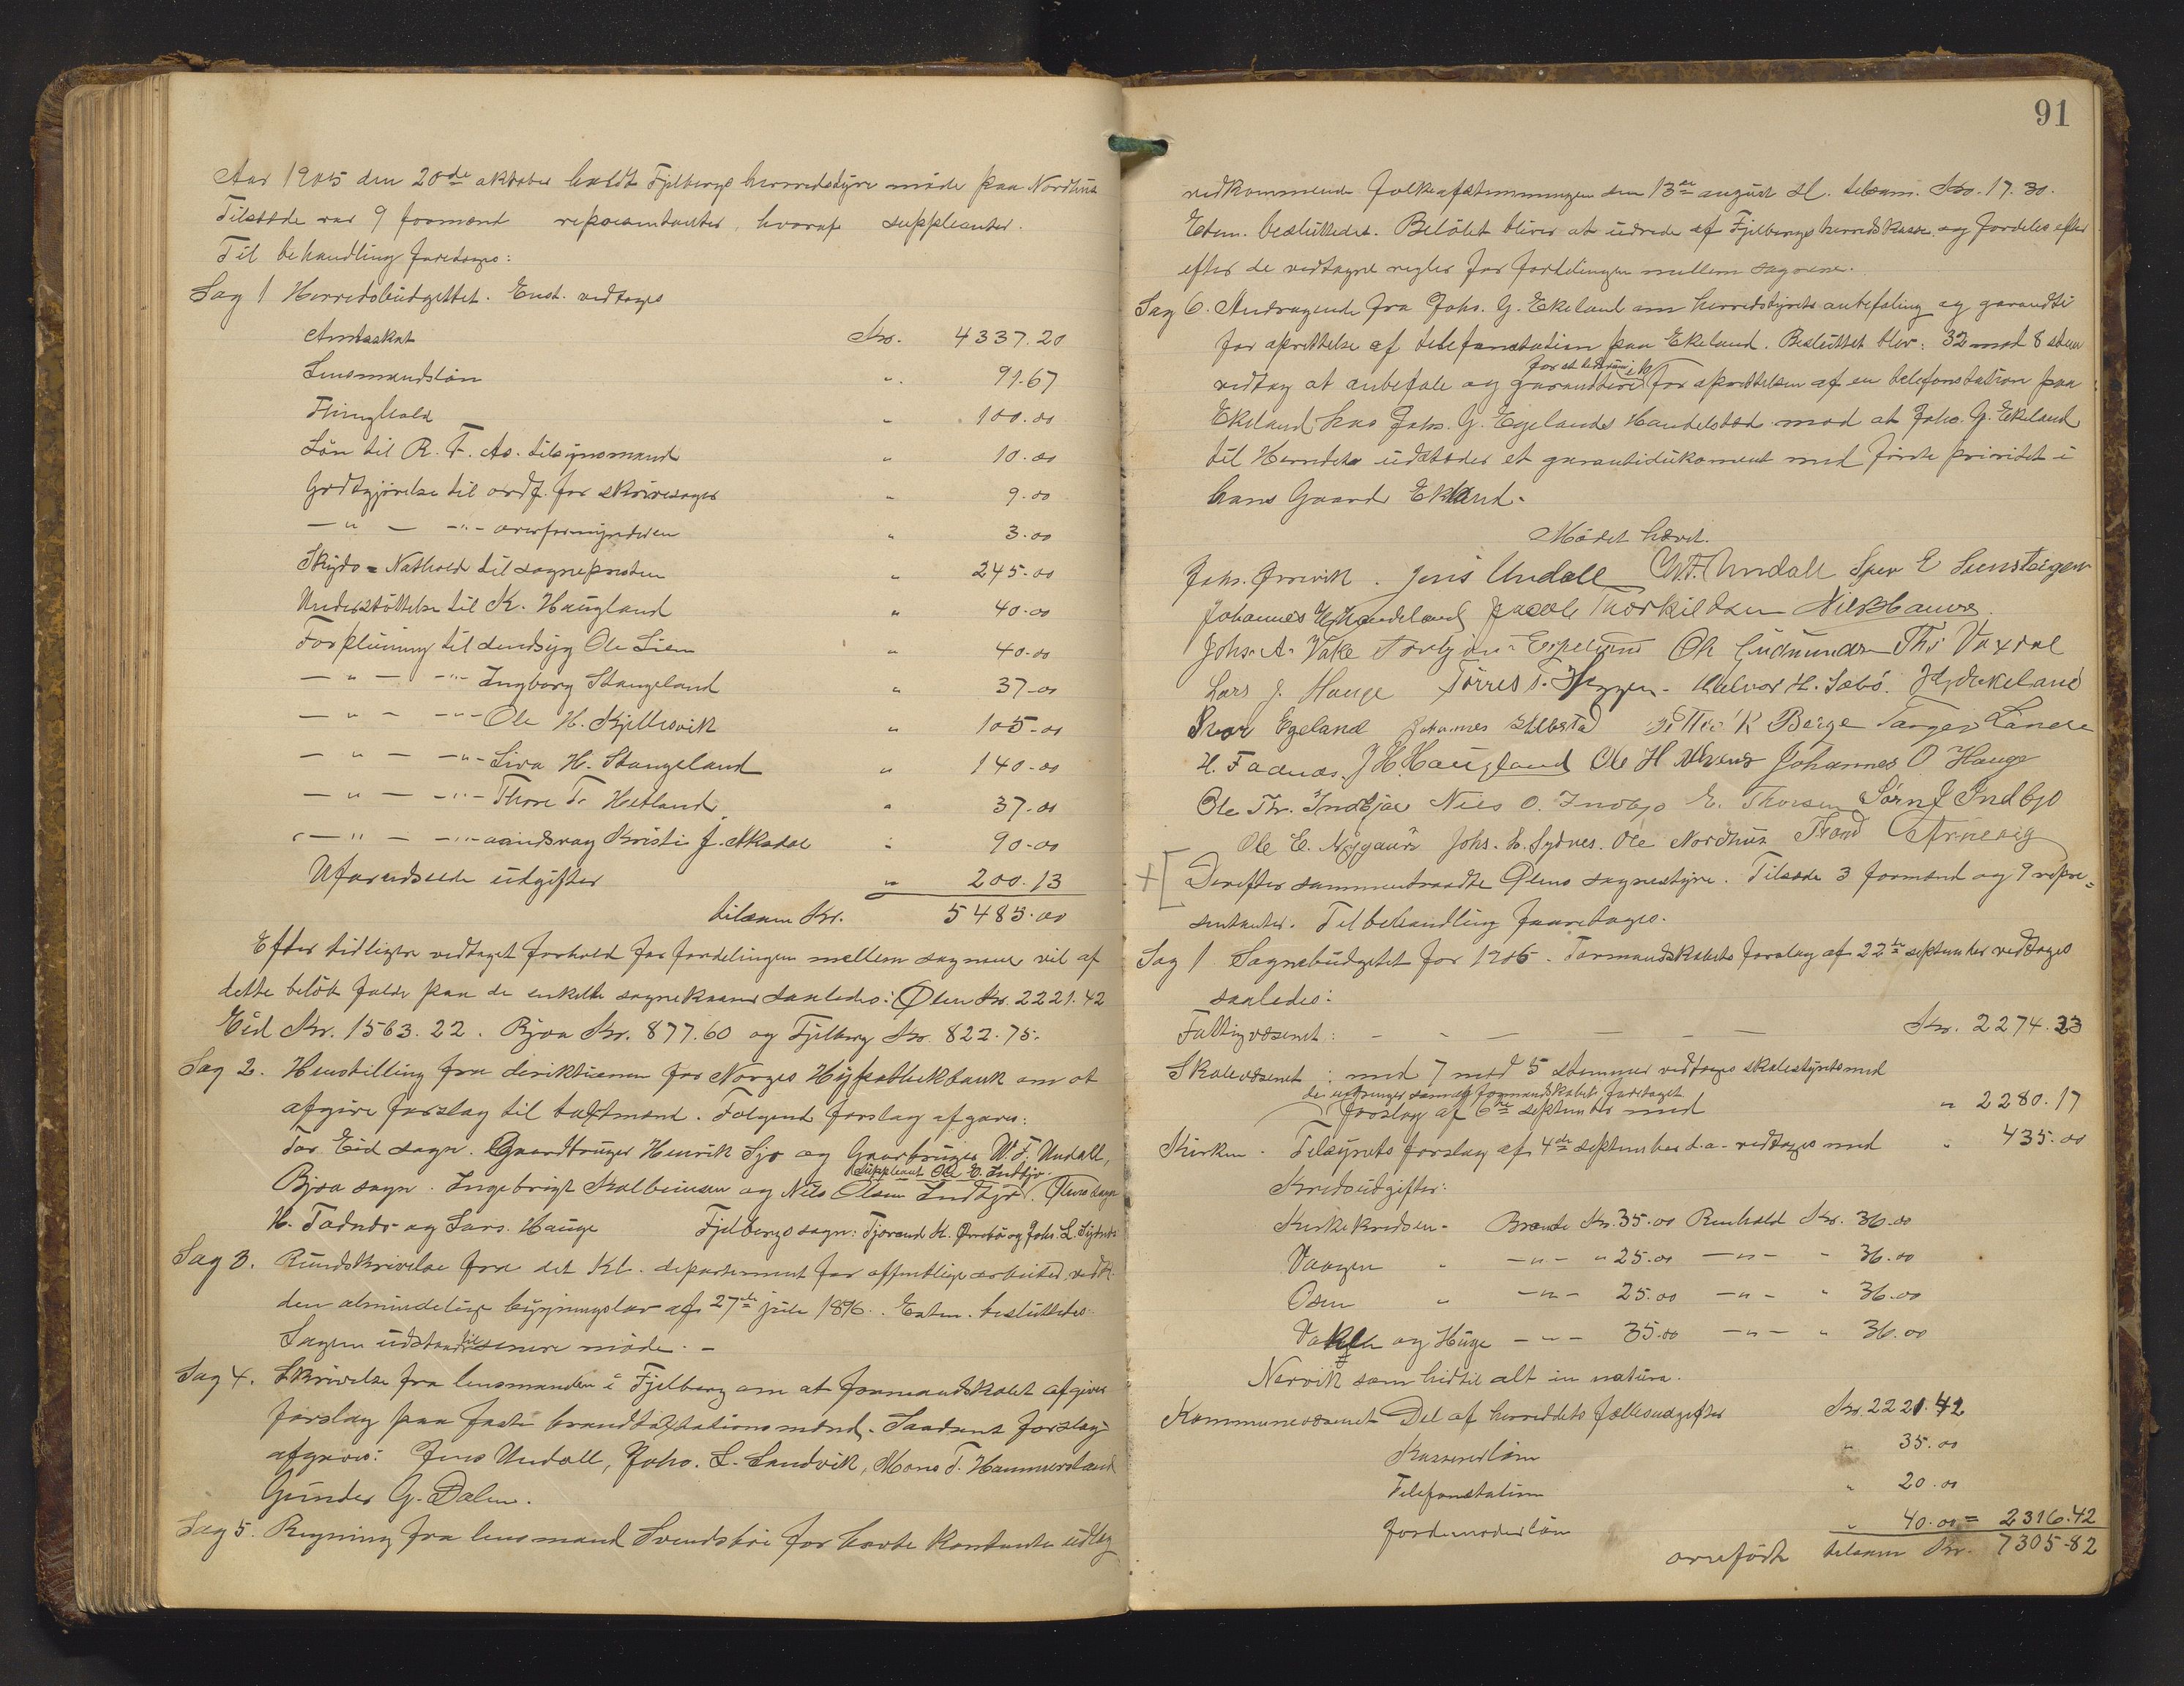 Aar 1905 den 20de oktober holdt Fjelbergs herredsstyre møde paa Nordhus
Tilstede var 9 formænd repræsentanter, hvoraf suppleanter.
Til behandling foretoges:
Sag 1 Herredsbudgettet. Enst. vedtoges
Amtsskat Kr. 4337.20
Lensmandsløn " 91.67
Thinghold " 100.00
Løn til R. F. As. tilsynsmand " 10.00
Godtgjørelse til ordf. for skrivesager " 9.00
— " — —"— overformynderen " 3.00
Skyds = Nathold til sognepresten " 245.00
Understøttelse til K. Haugland " 40.00
Forpleining til sindsyg Ole Lien " 40.00
— " — —"— Ingborg Stangeland " 37.00
— " — —"— Ole H. Kjellesvik " 105.00
— " — —"— Siva H. Stangeland " 140.00
— " — —"— Thore T. Hetland " 37.00
— " — —"— aandsvag Kristi J. Skadal " 90.00
Uforudseede utgifter " 200.13
tilsam Kr. 5485.00
Efter tidligere vedtaget forhold for fordelingen mellem sognene vil af
dette beløb falde paa de enkelte sognekasser saaledes: Ølen Kr. 2221.42
Eid Kr. 1563.22. Bjoa Kr. 877.60 og Fjelberg Kr. 822.75.
Sag 2. Henstilling fra direktionen for Norges Hypothekbank om at
afgive forslag til taxtmænd. Følgende forslag afgaves:
For Eid sogn. Gaardbruger Henrik Sjo og Gaarbruger W. F. Undall,
Suppleant Ole E. Indbjo.
Bjoa sogn. Ingebrigt Kalbeinsen og Nils Olsen Indbjo. Ølens sogn
H. Fadnes og Lars Hauge Fjelbergs sogn: Tjerand M. Ørrebø og Johs. L. Sydnes
Sag 3. Rundskrivelse fra det Kl. departement for offentlige arbeider vedk.
den almindelige bygningslov af 27de juli 1896. Enstm. besluttedes:
Sagen udstaar til senere møde. –
Sag 4. Skrivelse fra lensmanden i Fjelberg om at formandskabet afgiver
forslag paa faste brandtaxtationsmænd. Saadant forslag
afgaves: Jens Undall, Johs. L. Sandvik, Mons T. Hammersland
Gunder G. Dalen.
Sag 5. Regning fra lensmand Svendsbøe for havte kontante udlæg
91
vedkommende folkeafstemningen den 13de august d. tilsam. Kr. 17.30.
Ehtm. besluttedes. Beløbet bliver at udrede af Fjelbergs herredskasse og fordeles efter
efter de vedtagne regler for fordelingen mellem sognene.
Sag 6. Andragende fra Johs. G. Ekeland om herredstyrets anbefaling og garandti
for oprettelse af telefonstation paa Ekeland. Besluttet blev: 32 mod 8 stem
vedtog at anbefale og garandtere for oprettelsen af en telefonstation paa
Ekeland hos Johs. G. Egelands Handelsted mod at Johs. G. Ekeland
til Herredet udsteder et garantidukoment med første prioritet i
hans Gaard Ekland.
Mødet hævet.
Johs. Ørrevik. Jens Undall W.F. Undall Sper E Lunsteigen
Johannes Hændeland Jacob Thorkildsen Nils Hauge
Johs. A. Vakle Torbjørn Espeland Ole Gudmundsen Ths Vaxdal
Lars J. Hauge Tørres T. Halvor H. Sæbø. Ekeland
Ivar Egeland Johannes Berge Tørres Lunde
H. Fadnes. J H Haugland Ole H Johannes O Hauge
Ole Th. Indbjoe Nils O. Indbjo E. Thorsen Sørn J Indbjo
Ole E. Nygaard Johs. L. Sydnes. Ole Nordhus Trond Arnevig
Derefter sammentraadte Ølens sognestyre. Tilstede 3 formænd og 9 repræ=
sentanter. Til behandling foretoges.
Sag 1 Sognebudgettet for 1906. Formandskabets forslag af 22de septembr vedtoges
saaledes:
Fattigvæsenet: — — — — Kr. 2274.23
Skolevæsenet: med 7 mod 5 stemmer vedtoges skolestyrets med
de endringer som af formandskabet foretaget
forslag af 6te septembr med " 2280.17
Kirken. Tilsynets forslag af 4de september d.a. vedtoges med " 435.00
Kredsudgifter:
Kirkekredsen. Brænde Kr. 35.00 Renhold Kr. 36.00
Vaagen " —"— " 25.00 —"— " 36.00
Osen " —"— 25.00 —"— " 36.00
Vakle og Hauge —"— 35.00 —"— " 36.00
Nervik som hidtil alt in natura.
Kommunevæsenet Del af herreddets fællesudgifter Kr. 2221.42
Kassererløn " 35.00
Telefonstation " 20.00
Jordemoderløn " 40.00 = 2316.42
overføres tilsam Kr. 7305.82